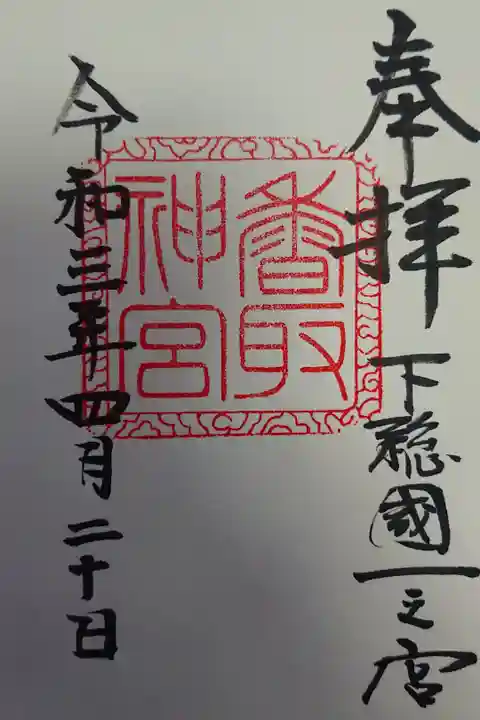 奉拝 下総國一之宮
香取
神宮
令和三年四月二十日